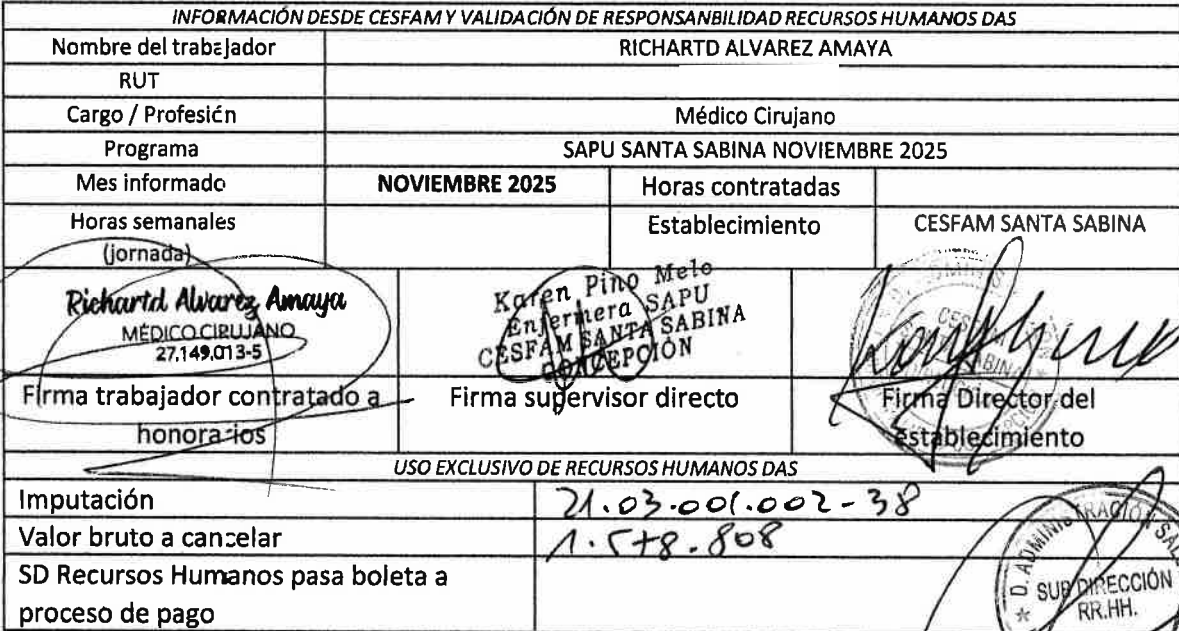 INFORMACIÓN DESDE CESFAM Y VALIDACIÓN DE RESPONSANBILIDAD RECURSOS HUMANOS DAS
Nombre del trabajador RICHARTD ALVAREZ AMAYA
RUT
Cargo / Profesión Médico Cirujano
Programa SAPU SANTA SABINA NOVIEMBRE 2025
Mes informado NOVIEMBRE 2025 Horas contratadas
Horas semanales (jornada) Establecimiento CESFAM SANTA SABINA
Richartd Alvarez Amaya
MÉDICO CIRUJANO
27.149.013-5
Karen Pino Melo
Enfermera SAPU
CESFAM SANTA SABINA
CONCEPCIÓN
CESFAM
SABINA
Firma trabajador contratado a honorarios
Firma supervisor directo
Firma Director del establecimiento
USO EXCLUSIVO DE RECURSOS HUMANOS DAS
Imputación 21.03.001.002-38
Valor bruto a cancelar 1.578.808
SD Recursos Humanos pasa boleta a
proceso de pago
D. ADMINISTRACIÓN SAL
SUB DIRECCIÓN
RR.HH.